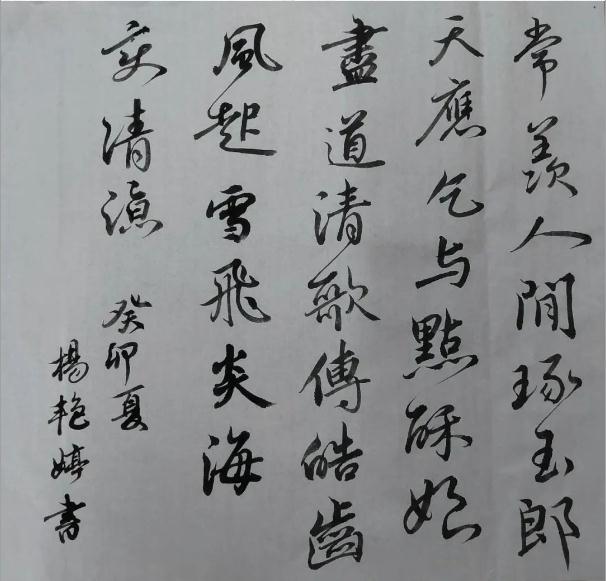 常羡人間琢玉郎
天應乞与點酥娘
盡道清歌傳皓齒
風起雪飛炎海
变清凉
癸卯夏
楊艳婷書